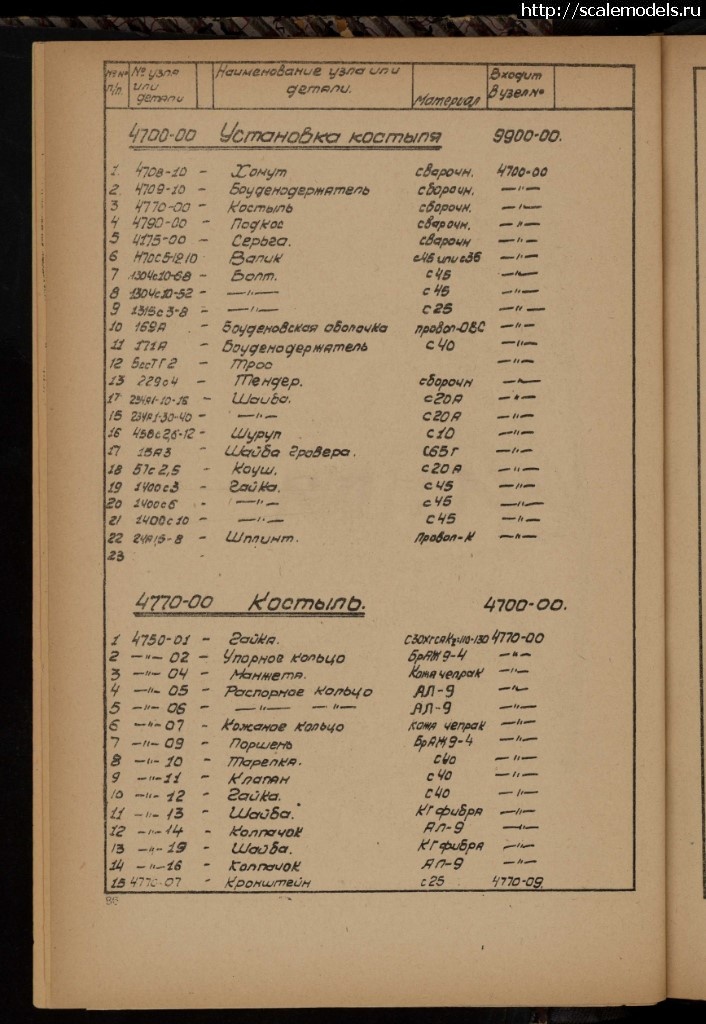 http://scalemodels.ru
№№ п/п. № узла или детали Наименование узла или детали. Материал Входит в узел №
4700-00 Установка костыля 9900-00.
1. 4708-10 - Хомут сварочн. 4700-00
2. 4709-10 - Боуденодержатель сборочн. -"-
3 4770-00 - Костыль сборочн. -"-
4 4790-00 - Подкос сварочн. -"-
5 4175-00 - Серьга. сварочн -"-
6 Н70С5-12 10 Валик с45 или с35 -"-
7 1304с10-68 - Болт. с45 -"-
8 1304с10-52 - -"- с45 -"-
9 1315с3-8 - -"- с25 -"-
10 169А - Боуденовская оболочка провол-ОВС -"-
11 171А - Боуденодержатель с40 -"-
12 5ссТГ2 - Трос -"-
13 229с4 - Тендер. сборочн -"-
17 234А1-10-16 - Шайба. с20А -"-
15 234А1-30-40 - -"- с20А -"-
16 458с2,6-12 - Шуруп с10 -"-
17 15А3 - Шайба Гровера. С65г -"-
18 57с2,5 - Коуш. с20А -"-
19 1400с3 - Гайка. с45 -"-
20 1400с6 - -"- с45 -"-
21 1400с10 - -"- с45 -"-
22 24А15-8 - Шплинт. Провол-К -"-
23 -
4770-00 Костыль. 4700-00.
1 4750-01 - Гайка. С30ХГСА Кz=110-130 4770-00
2 -"- 02 - Упорное кольцо БрАЖ9-4 -"-
3 -"- 04 - Манжета. Кожа чепрак -"-
4 -"- 05 - Распорное кольцо АЛ-9 -"-
5 -"- 06 - -"- -"- АЛ-9 -"-
6 -"- 07 - Кожаное кольцо кожа чепрак -"-
7 -"- 09 - Поршень БрАЖ9-4 -"-
8 -"- 10 - Тарелка. с40 -"-
9 -"- 11 - Клапан с40 -"-
10 -"- 12 - Гайка. с40 -"-
11 -"- 13 - Шайба. КГфибра -"-
12 -"- 14 - Колпачок АЛ-9 -"-
13 -"- 19 - Шайба. КГфибра -"-
14 -"- 16 - Колпачок АЛ-9 -"-
15 4770-07 - Кронштейн с25 4770-09.